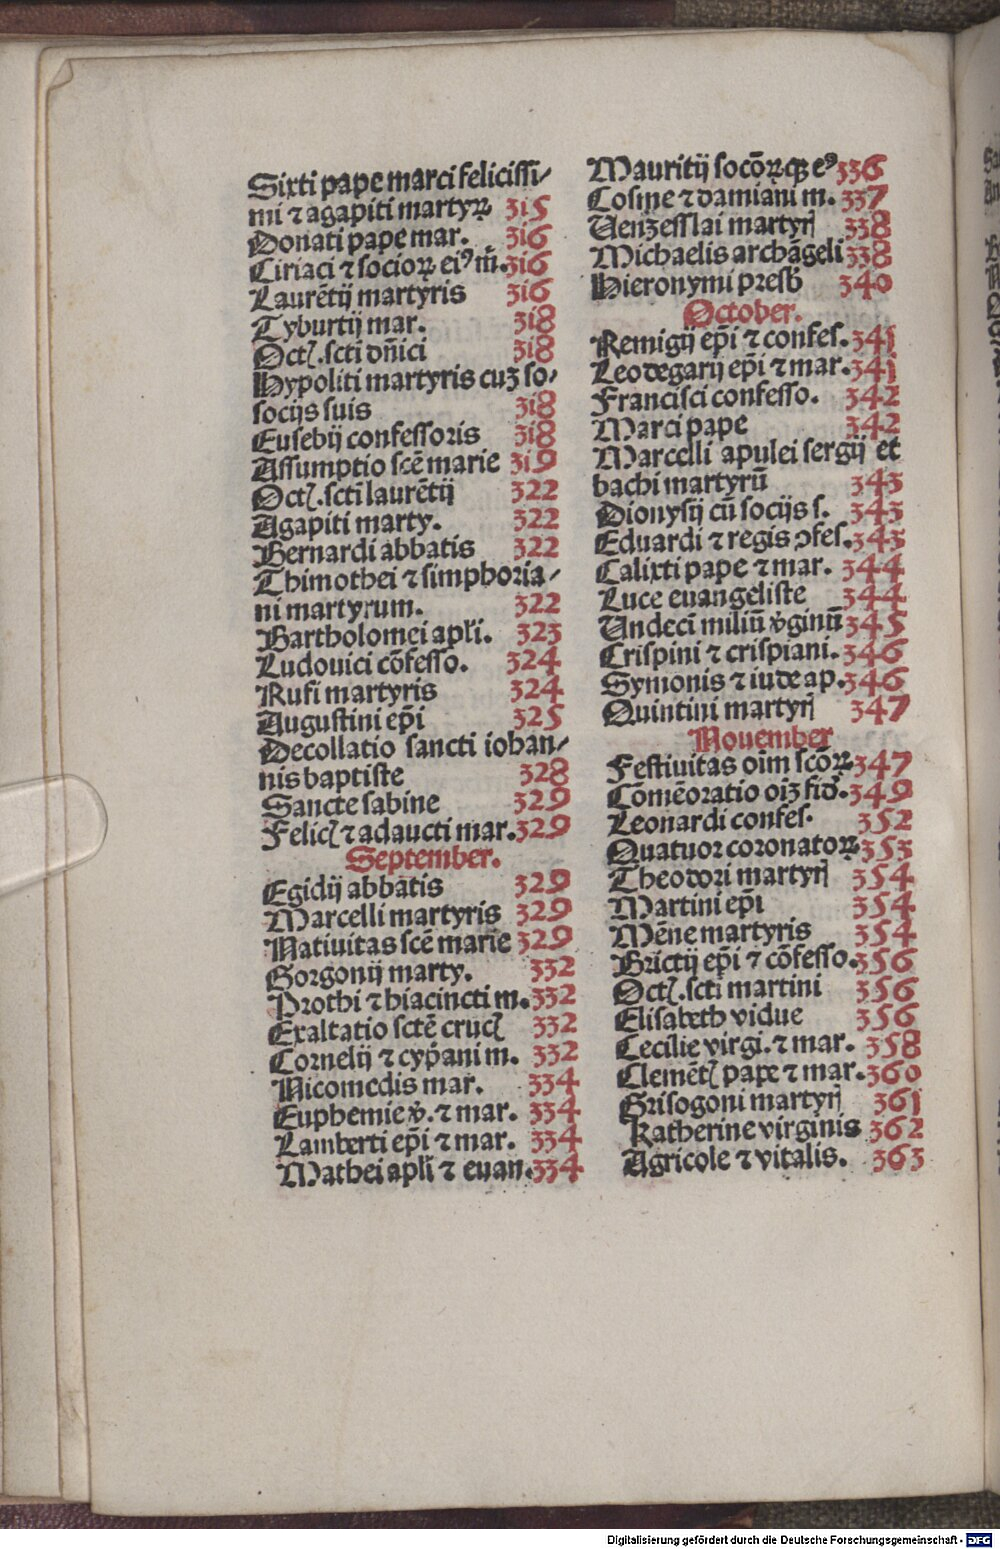 Sixti pape marci felicissi/
mi ⁊ agapiti martyrꝝ 315
Donati pape mar. 316
Ciriaci ⁊ socioꝝ eiꝰ m̄. 316
Laurētij martyris 316
Tyburtij mar. 318
Octꝭ. scti dn̄ici 318
Hypoliti martyris cuʒ so/
socijs suis 318
Eusebij confessoris 318
Assumptio scē marie 319
Octꝭ. scti laurētij 322
Agapiti marty. 322
Bernardi abbatis 322
Thimothei ⁊ simphoria/
ni martyrum. 322
Bartholomei apl̄i. 323
Ludouici cōfesso. 324
Rufi martyris 324
Augustini ep̄i 325
Decollatio sancti iohan/
nis baptiste 328
Sancte sabine 329
Felicꝭ ⁊ adaucti mar. 329
September.
Egidij abbatis 329
Marcelli martyris 329
Natiuitas scē marie 329
Gorgonij marty. 332
Prothi ⁊ hiacincti m. 332
Exaltatio sctē crucꝭ 332
Cornelij ⁊ cyp̄ani m. 332
Nicomedis mar. 334
Euphemie v̄. ⁊ mar. 334
Lamberti ep̄i ⁊ mar. 334
Mathei apl̄i ⁊ euan. 334
Mauritij socōꝝqꝫ eꝰ 336
Cosme ⁊ damiani m. 337
Uenzesslai martyrꝭ 338
Michaelis archāgeli 338
Hieronymi presb̄ 340
October.
Remigij ep̄i ⁊ confes. 341
Leodegarij ep̄i ⁊ mar. 341
Francisci confesso. 342
Marci pape 342
Marcelli apulei sergij et
bachi martyrū 343
Dionysij cū socijs s. 343
Eduardi ⁊ regis ꝯfes. 343
Calixti pape ⁊ mar. 344
Luce euangeliste 344
Undeci miliū v̄ginū 345
Crispini ⁊ crispiani. 346
Symonis ⁊ iude ap. 346
Quintini martyrꝭ 347
Nouember
Festiuitas oīm scōꝝ 347
Cōmēoratio oīʒ fid̄. 349
Leonardi confes. 352
Quatuor coronatoꝝ 353
Theodori martyrꝭ 354
Martini ep̄i 354
Mēne martyris 354
Brictij ep̄i ⁊ cōfesso. 356
Octꝭ. scti martini 356
Elisabeth vidue 356
Cecilie virgi. ⁊ mar. 358
Clemētꝭ pape ⁊ mar. 360
Grisogoni martyrꝭ 361
Katherine virginis 362
Agricole ⁊ vitalis. 363
Digitalisierung gefördert durch die Deutsche Forschungsgemeinschaft - DFG